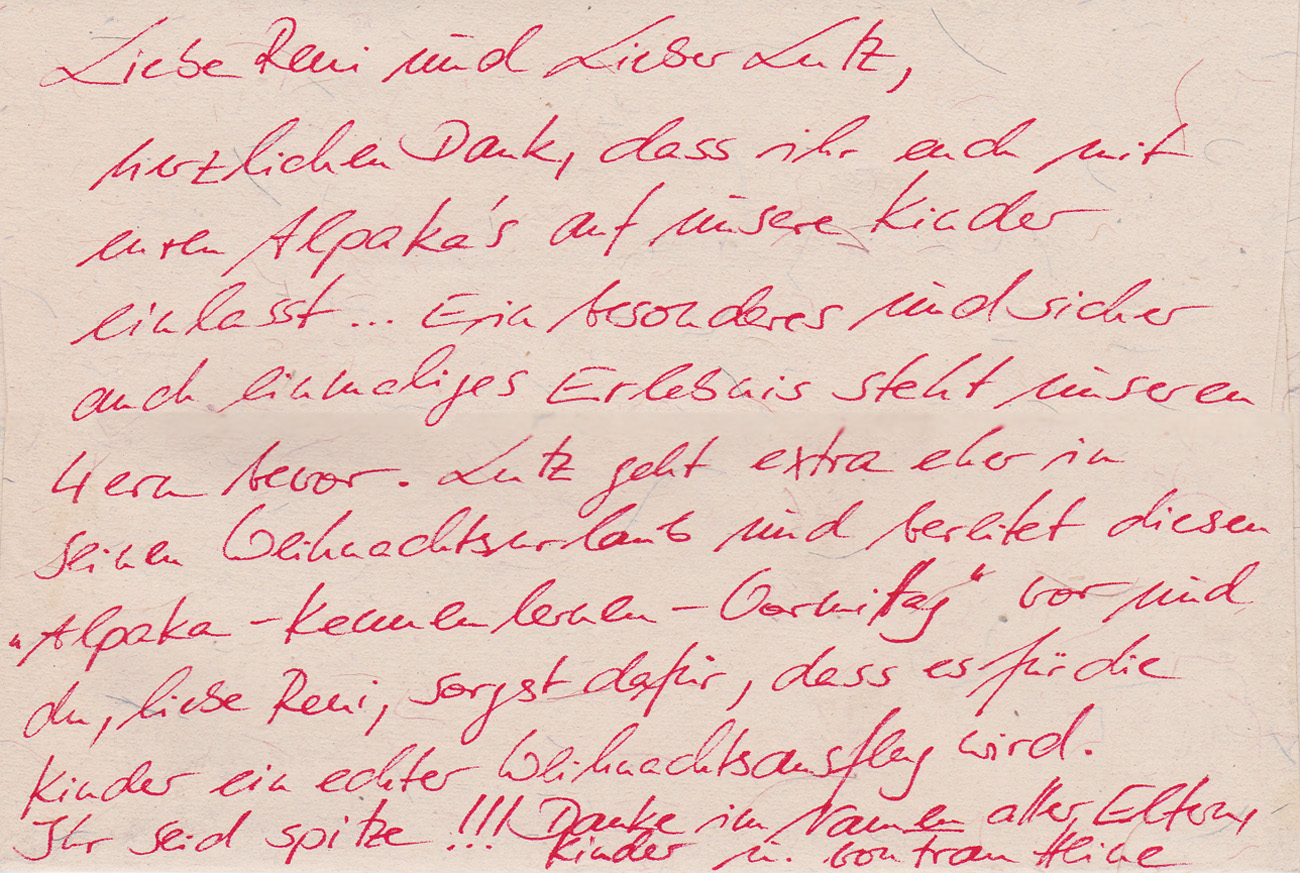 Liebe Reni und Lieber Lutz,
herzlichen Dank, dass ihr euch mit
euren Alpaka's auf unsere Kinder
einlasst... Ein besonderes und sicher
auch einmaliges Erlebnis steht unseren
4ern bevor. Lutz geht extra eher in
seinen Weihnachtsurlaub und bereitet diesen
„Alpaka-Kennenlernen-Vormittag" vor und
du, liebe Reni, sorgst dafür, dass es für die
Kinder ein echter Weihnachtsausflug wird.
Ihr seid spitze!!! Danke im Namen aller Eltern,
Kinder u. von Frau